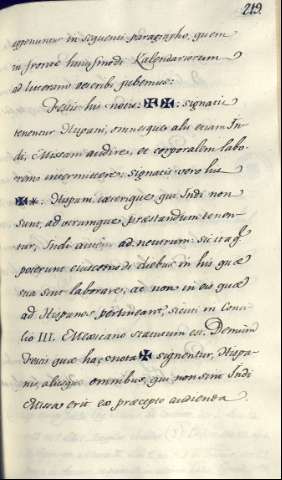 219.
apponuntur in sequenti paragrapho, quem
in fronte hujusmodi Kalendariorum
ad litteram describi jubemus:
Festis his notis: ✠✠: signatis
tenentur Hispani, omnesque alii etiam In-
di, Missam audire, et corporalem labo-
rem intermittere: signatis vero his
✠*. Hispani, cæterique qui Indi non
sunt, ad utrumque præstandum tenen-
tur, Indi autem ad neutrum: sic itaq̃
poterunt ejusmodi diebus in his quæ
sua sint laborare, ac non in eis quæ
ad Hispanos pertineant, sicuti in Conci-
lio III. Mexicano statutum est. Demum
diebus quæ hac nota ✠ signentur, Hispa-
nis, aliisque omnibus, qui non sint Indi
Missa erit ex præcepto audienda